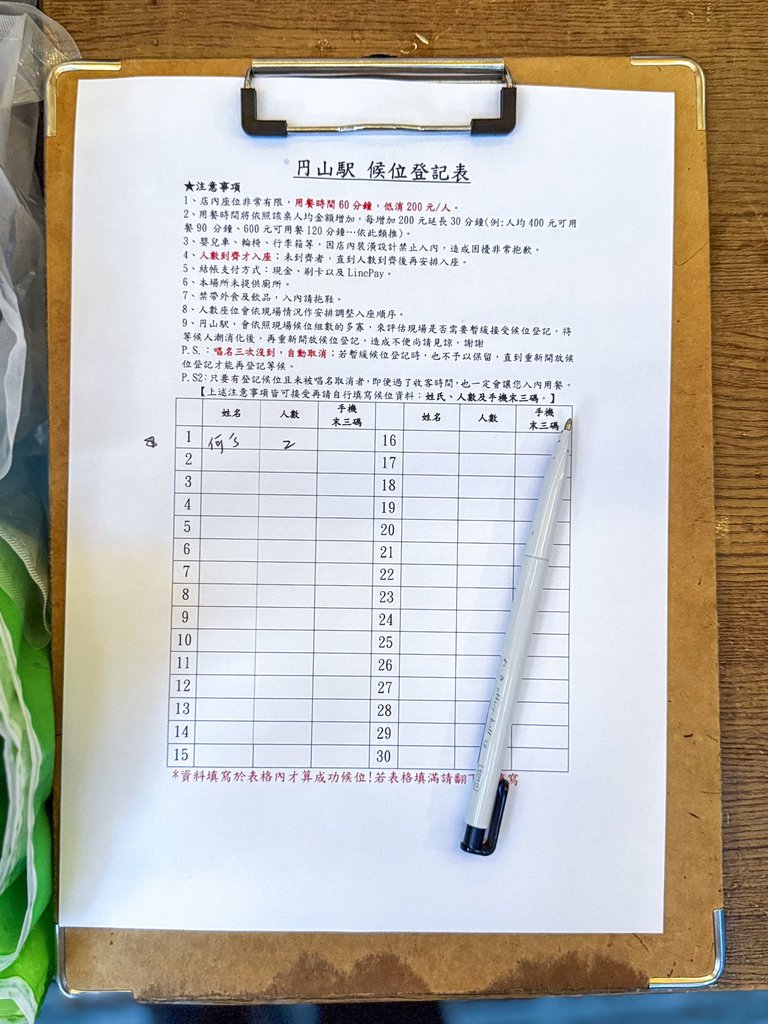 円山駅 候位登記表
★注意事項
1、店內座位非常有限，用餐時間60分鐘，低消200元/人。
2、用餐時間將依照該桌人均金額增加，每增加200元延長30分鐘(例:人均400元可用
餐90 分鐘、600元可用餐120分鐘…依此類推)。
3、嬰兒車、輪椅、行李箱等，因店內裝潢設計禁止入內，造成困擾非常抱歉。
4、人數到齊才入座；未到齊者，直到人數到齊後再安排入座。
5、結帳支付方式：現金、刷卡以及LinePay。
6、本場所未提供廁所。
7、禁帶外食及飲品，入內請拖鞋。
8、人數座位會依現場情況作安排調整入座順序。
9、円山駅，會依照現場候位組數的多寡，來評估現場是否需要暫緩接受候位登記，待
等候人潮消化後，再重新開放候位登記，造成不便尚請見諒，謝謝
P.S.：唱名三次沒到，自動取消；若暫緩候位登記時，也不予以保留，直到重新開放候
位登記才能再登記等候。
P.S2：只要有登記候位且未被唱名取消者，即便過了收客時間，也一定會讓您入內用餐。
【上述注意事項皆可接受再請自行填寫候位資料：姓氏、人數及手機末三碼。】
姓名 人數 手機末三碼 姓名 人數 手機末三碼
1 何's 2 16
2 17
3 18
4 19
5 20
6 21
7 22
8 23
9 24
10 25
11 26
12 27
13 28
14 29
15 30
*資料填寫於表格內才算成功候位!若表格填滿請翻 寫